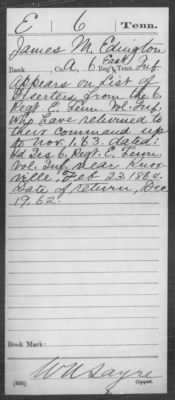 E 6 Tenn.
James M. Edington
Rank, Co. A, 6 Reg't East Tenn. Inf
Appears on List of
Deserters from the 6.
Regt. E. Tenn. Vol. Inf.,
who have returned to
their command up
to Nov. 1. 63. dated:
Hd Qrs 6. Regt. E. Tenn.
Vol. Inf near Knox-
ville, Feb 23. 1864.
Date of return, Dec.
19, 62.
Book Mark:
W A Sayre
Copyist.